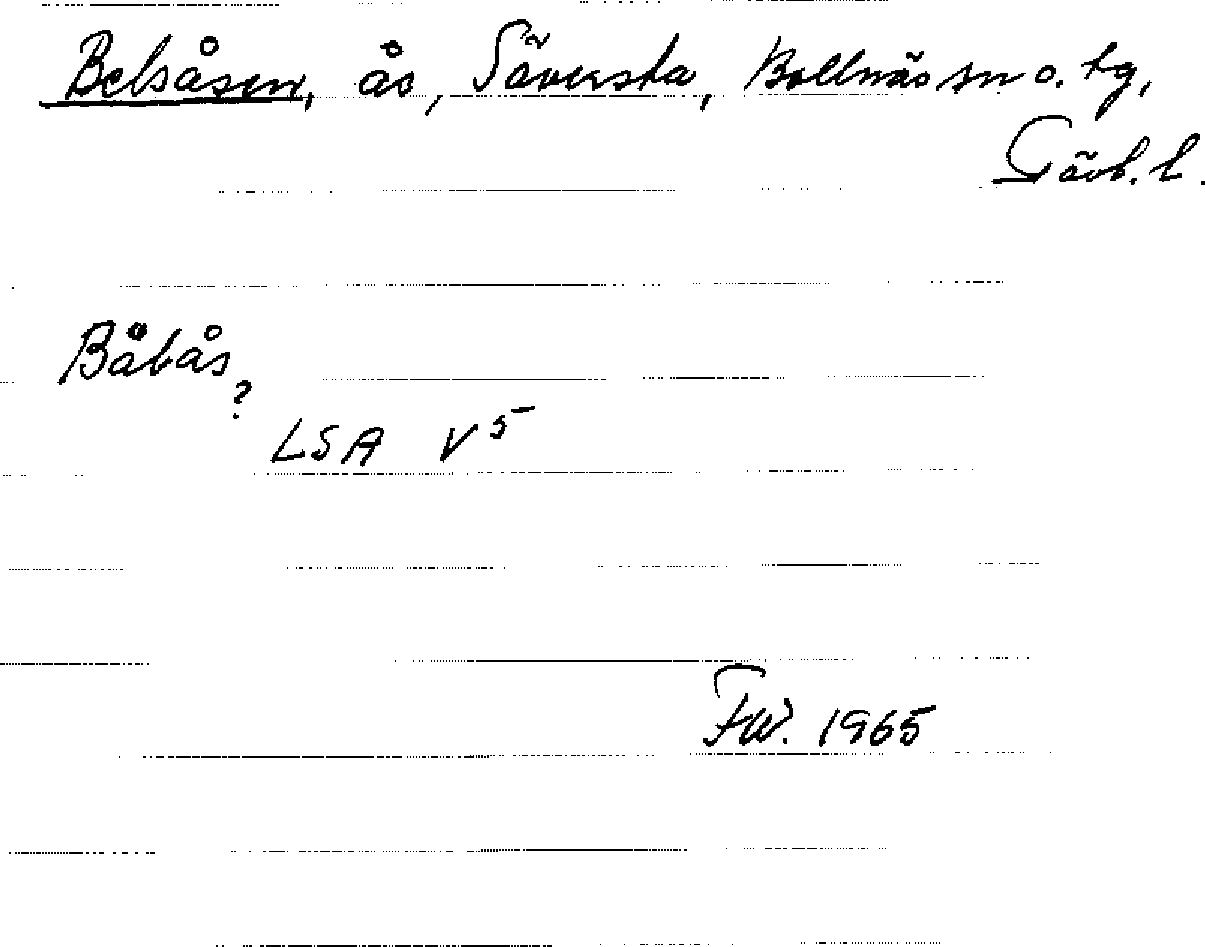 Belsåsen, ås, Säversta, Bollnäs sn o. tg,
Gävb. l.
Båbås
?
LSA V5
FW. 1965